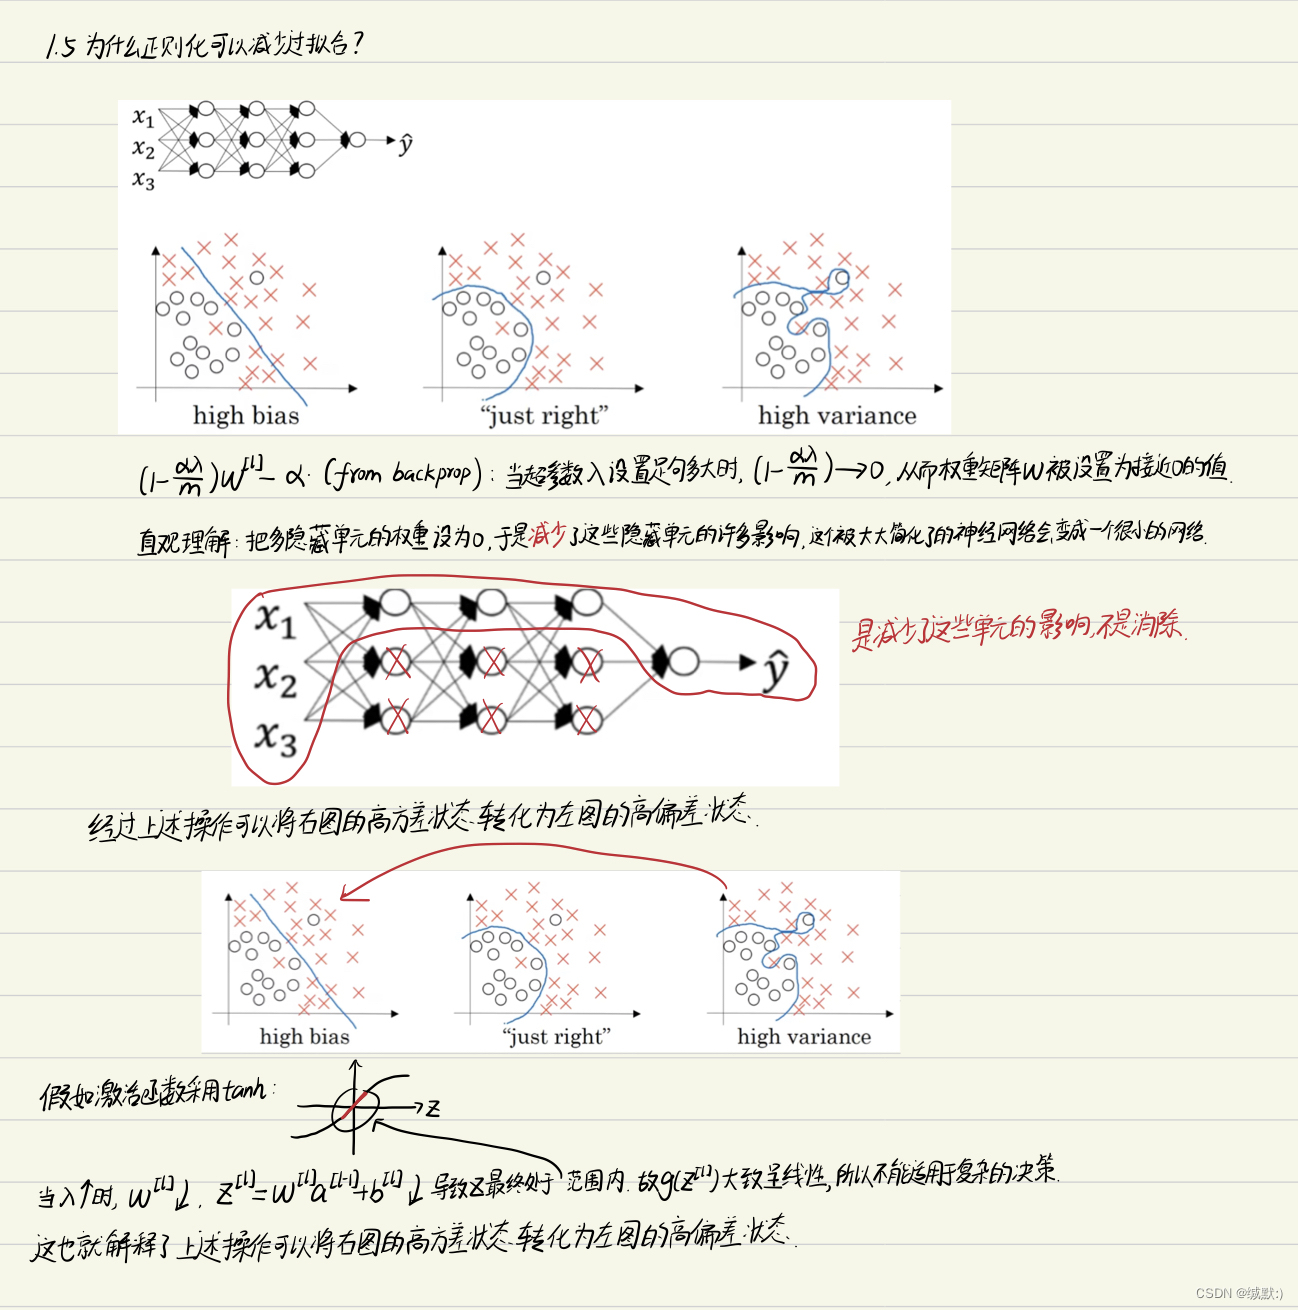 1.5 为什么正则化可以减少过拟合？
x₁
x₂
x₃
ŷ
high bias
“just right”
high variance
(1-αλ/m)w^[l] - α·(from backprop)：当超参数λ设置足够大时，(1-αλ/m)→0，从而权重矩阵w被设置为接近0的值.
直观理解：把多隐藏单元的权重设为0，于是减少了这些隐藏单元的许多影响，这个被大大简化了的神经网络会变成一个很小的网络.
x₁
x₂
x₃
ŷ
是减少了这些单元的影响，不是消除.
经过上述操作可以将右图的高方差状态转化为左图的高偏差状态.
high bias
“just right”
high variance
假如激活函数采用tanh：
z
当λ↑时，w^[l]↓，z^[l]=w^[l]a^[l-1]+b^[l]↓ 导致z最终处于 范围内. 故g(z^[l])大致呈线性，所以不能适用于复杂的决策.
这也就解释了上述操作可以将右图的高方差状态转化为左图的高偏差状态.
CSDN @缄默:)